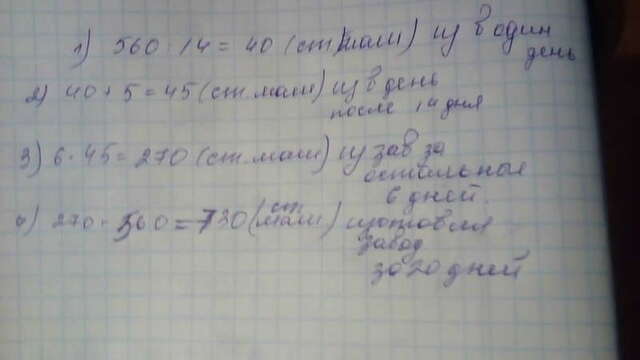 1) 560 : 14 = 40 (ст.маш) из в один
день
2) 40 + 5 = 45 (ст.маш) из в день
после 14 дня
3) 6 · 45 = 270 (ст.маш) из зав за
остальные
6 дней.
4) 270 + 560 = 730 (ст.маш) изготовил
завод
за 20 дней